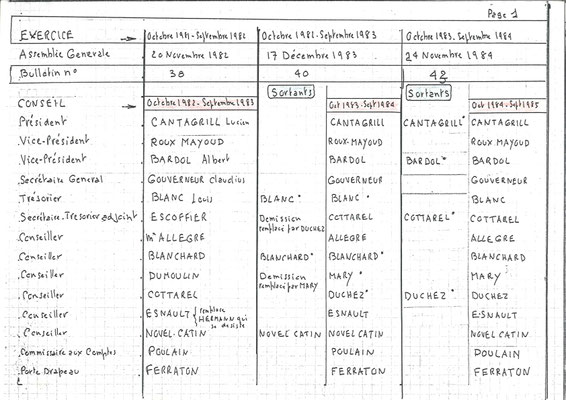 Page 1
EXERCICE → Octobre 1981-Septembre 1982 Octobre 1982-Septembre 1983 Octobre 1983-Septembre 1984
Assemblée Generale 20 Novembre 1982 17 Décembre 1983 24 Novembre 1984
Bulletin n° 38 40 42
Sortants Sortants
CONSEIL → Octobre 1982-Septembre 1983 Oct 1983-Sept 1984 Oct 1984-Sept 1985
Président CANTAGRILL Lucien CANTAGRILL CANTAGRILL* CANTAGRILL
Vice-Président ROUX MAYOUD ROUX-MAYOUD ROUX-MAYOUD
Vice-Président BARDOL Albert BARDOL BARDOL* BARDOL
Secrétaire General GOUVERNEUR Claudius GOUVERNEUR GOUVERNEUR
Trésorier BLANC Louis BLANC* BLANC* BLANC
Secrétaire-Tresorier adjoint ESCOFFIER Demission COTTAREL COTTAREL* COTTAREL
remplacé par DUCHEZ
Conseiller Me ALLEGRE ALLEGRE ALLEGRE
Conseiller BLANCHARD BLANCHARD* BLANCHARD* BLANCHARD
Conseiller DUMOULIN Demission MARY* MARY
remplacé par MARY
Conseiller COTTAREL DUCHEZ* DUCHEZ* DUCHEZ
Conseiller ESNAULT { remplace ESNAULT ESNAULT
HERMANN qui
se desiste
Conseiller NOVEL-CATIN NOVEL CATIN NOVEL CATIN NOVEL-CATIN
Commissaire aux Comptes POULAIN POULAIN POULAIN
Porte Drapeau FERRATON FERRATON FERRATON